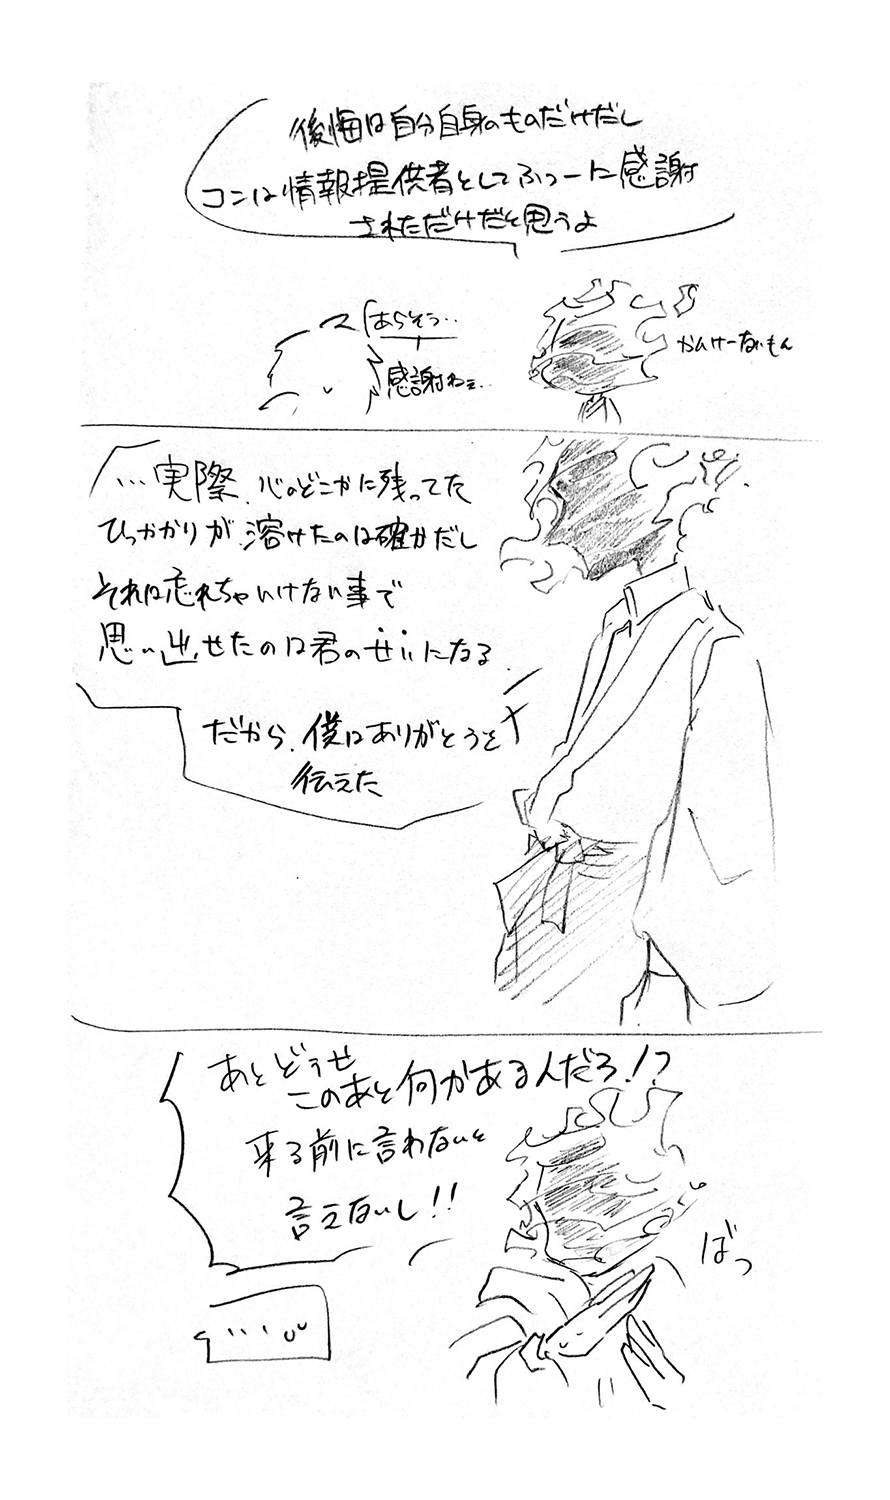 後悔は自分自身のものだけだし
コンは情報提供者としてふつーに感謝
されただけだと思うよ
かんけーないもん
あらそう…
感謝ねぇ…
…実際、心のどこかに残ってた
ひっかかりが溶けたのは確かだし
それは忘れちゃいけない事で
思い出せたのは君のせいになる
だから、僕はありがとうを
伝えた
あとどうせ
このあと何かあるんだろ!?
来る前に言わないと
言えないし!!
ばっ